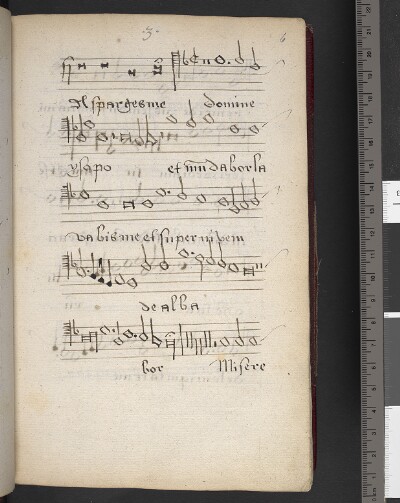 3.
6
Il spargesme domine
ysapo et mũdaborla
vabisme et super nĩbem
de alba
bor Misere